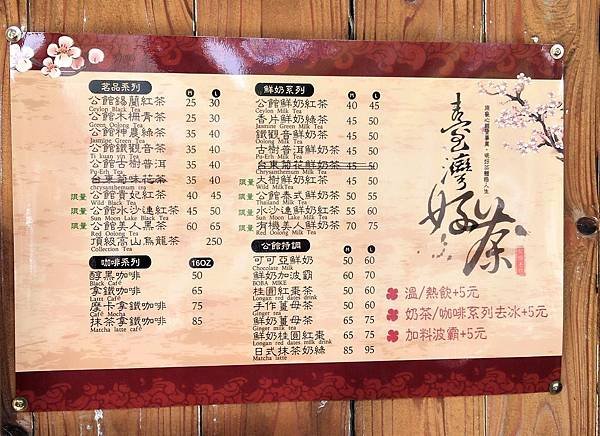 茗品系列 M L
公館錫蘭紅茶 25 30
Ceylon Black Tea
公館木柵青茶 25 30
Green Oolong Tea
公館神農綠茶 35 40
Jasmine Green Tea
公館鐵觀音茶 35 40
Ti kuan yin Tea
公館古樹普洱 35 40
Pu-Erh Tea
台東菊味花茶 35 40
chrysanthemum tea
限量 公館貴妃紅茶 40 45
Wild Black Tea
限量 公館水沙連紅茶 45 50
Sun Moon Lake Black Tea
限量 公館美人黑茶 60 65
Red Oolong Tea
頂級高山烏龍茶 250
Collection Tea
咖啡系列 16OZ
醇黑咖啡 50
Black Café
拿鐵咖啡 65
Latté Café
摩卡拿鐵咖啡 75
Café Mocha
抹茶拿鐵咖啡 85
Matcha latte café
鮮奶系列 M L
公館鮮奶紅茶 40 45
Ceylon Milk Tea
香片鮮奶綠茶 45 50
Jasmine Green Milk Tea
鐵觀音鮮奶茶 45 50
Oolong Milk Tea
古樹普洱鮮奶茶 45 50
Pu-Erh Milk Tea
台東菊花鮮奶茶 45 50
Chrysanthemum Milk Tea
限量 大樹鮮奶紅茶 45 50
Wild MilkTea
限量 公館泰式鮮奶茶 50 55
Thailand Milk Tea
限量 水沙連鮮奶紅茶 55 60
Sun Moon Lake Milk Tea
限量 有機美人鮮奶茶 70 75
Red Oolong Milk Tea
公館特調 M L
可可亞鮮奶 50 60
Chocolate Milk
鮮奶加波霸 60 70
BOBA MIKE
桂圓紅棗茶 50 60
Longan red dates drink
手作薑母茶 50 60
Ginger tea
鮮奶薑母茶 65 75
Ginger milk tea
鮮奶桂圓紅棗 65 75
Longan red dates milk drink
日式抹茶奶綠 85 95
Matcha latte
臺灣好茶
溫/熱飲+5元
奶茶/咖啡系列去冰+5元
加料波霸+5元